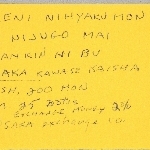 ENI NIHYAKU MON
NIJUGO MAI
ANKIN NI BU
AKA KAWASE KAISHA
SN, 200 MON
25
EXCHANGE MONEY 2%
SAKA EXCHANGE CO.